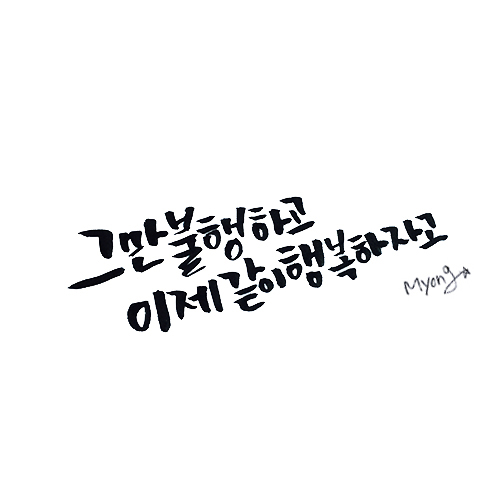 그만 불행하고
이제 같이 행복하자고
Myong